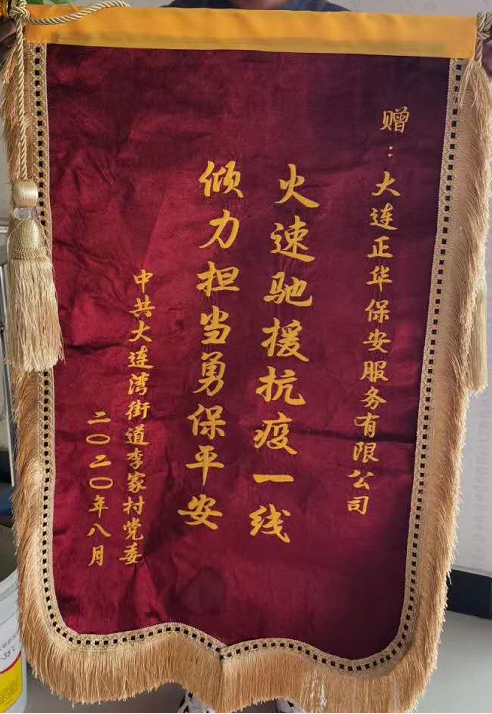 赠：大连正华保安服务有限公司
火速驰援抗疫一线
倾力担当勇保平安
中共大连湾街道李家村党委
二〇二〇年八月